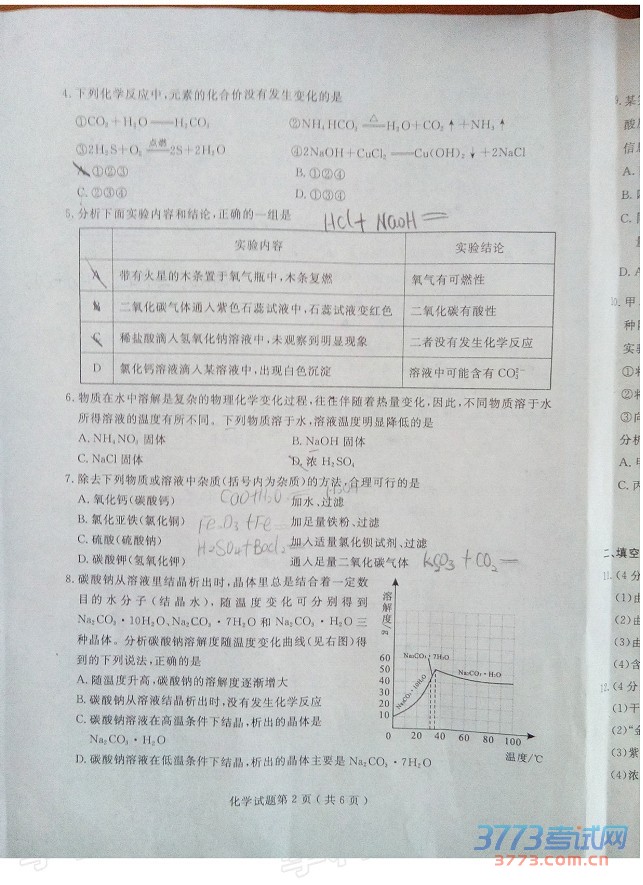 4.下列化学反应中,元素的化合价没有发生变化的是
①CO₂+H₂O══H₂CO₃ ②NH₄HCO₃ △══ H₂O+CO₂↑+NH₃↑
③2H₂S+O₂ 点燃══ 2S+2H₂O ④2NaOH+CuCl₂══Cu(OH)₂↓+2NaCl
A.①②③ B.①②④
C.②③④ D.①③④
5.分析下面实验内容和结论,正确的一组是 HCl+NaOH=
实验内容 实验结论
A 带有火星的木条置于氧气瓶中,木条复燃 氧气有可燃性
B 二氧化碳气体通入紫色石蕊试液中,石蕊试液变红色 二氧化碳有酸性
C 稀盐酸滴入氢氧化钠溶液中,未观察到明显现象 二者没有发生化学反应
D 氯化钙溶液滴入某溶液中,出现白色沉淀 溶液中可能含有 CO₃²⁻
6.物质在水中溶解是复杂的物理化学变化过程,往往伴随着热量变化,因此,不同物质溶于水
所得溶液的温度有所不同。下列物质溶于水,溶液温度明显降低的是
A.NH₄NO₃ 固体 B.NaOH 固体
C.NaCl 固体 D.浓 H₂SO₄
7.除去下列物质或溶液中杂质(括号内为杂质)的方法,合理可行的是
A.氧化钙(碳酸钙) 加水、过滤
B.氯化亚铁(氯化铜) 加足量铁粉、过滤
C.硫酸(硫酸钠) H₂SO₄+BaCl₂= 加入适量氯化钡试剂、过滤
D.碳酸钾(氢氧化钾) 通入足量二氧化碳气体
8.碳酸钠从溶液里结晶析出时,晶体里总是结合着一定数
目的水分子(结晶水),随温度变化可分别得到
Na₂CO₃·10H₂O、Na₂CO₃·7H₂O 和 Na₂CO₃·H₂O 三
种晶体。分析碳酸钠溶解度随温度变化曲线(见右图)得
到的下列说法,正确的是
A.随温度升高,碳酸钠的溶解度逐渐增大
B.碳酸钠从溶液结晶析出时,没有发生化学反应
C.碳酸钠溶液在高温条件下结晶,析出的晶体是
Na₂CO₃·H₂O
D.碳酸钠溶液在低温条件下结晶,析出的晶体主要是 Na₂CO₃·7H₂O
溶解度/g
60
50
40
30
20
10
0 20 40 60 80 100
温度/℃
Na₂CO₃·10H₂O
Na₂CO₃·7H₂O
Na₂CO₃·H₂O
化学试题第 2 页(共 6 页)
二、填空
3773考试网
3773.com.cn